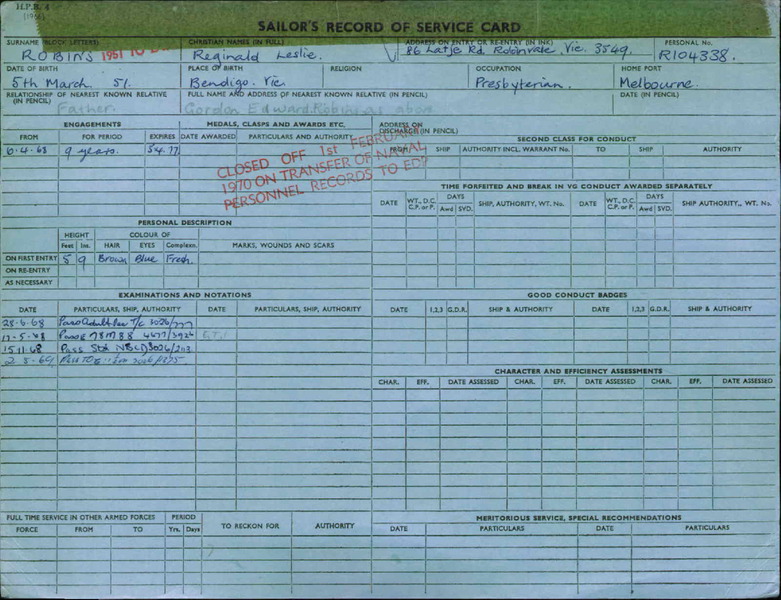 H.P.R. 4
(1956)
SAILOR'S RECORD OF SERVICE CARD
SURNAME (BLOCK LETTERS) CHRISTIAN NAMES (IN FULL) ADDRESS ON ENTRY OR RE-ENTRY (IN INK) PERSONAL No.
ROBINS 1951 TO Reginald Leslie. 86 Latje Rd, Robinvale, Vic. 3549. R104338.
DATE OF BIRTH PLACE OF BIRTH RELIGION OCCUPATION HOME PORT
5th March. 51. Bendigo. Vic. Presbyterian. Melbourne.
RELATIONSHIP OF NEAREST KNOWN RELATIVE (IN PENCIL) FULL NAME AND ADDRESS OF NEAREST KNOWN RELATIVE (IN PENCIL) DATE (IN PENCIL)
Father. Gordon Edward Robins as above
ENGAGEMENTS MEDALS, CLASPS AND AWARDS ETC. ADDRESS ON DISCHARGE (IN PENCIL)
FROM FOR PERIOD EXPIRES DATE AWARDED PARTICULARS AND AUTHORITY
6.4.68 9 years. 5.4.77
CLOSED OFF 1st FEBRUARY
1970 ON TRANSFER OF NAVAL
PERSONNEL RECORDS TO EDP
SECOND CLASS FOR CONDUCT
FROM SHIP AUTHORITY INCL. WARRANT No. TO SHIP AUTHORITY
TIME FORFEITED AND BREAK IN VG CONDUCT AWARDED SEPARATELY
DATE WT., D.C. C.P. or P. DAYS Awd SVD. SHIP, AUTHORITY, WT. No. DATE WT., D.C. C.P. or P. DAYS Awd SVD. SHIP AUTHORITY, WT. No.
PERSONAL DESCRIPTION
HEIGHT COLOUR OF
Feet Ins. HAIR EYES Complexn. MARKS, WOUNDS AND SCARS
ON FIRST ENTRY 5 9 Brown Blue Fresh.
ON RE-ENTRY
AS NECESSARY
EXAMINATIONS AND NOTATIONS
DATE PARTICULARS, SHIP, AUTHORITY DATE PARTICULARS, SHIP, AUTHORITY
28-6-68 T/c 3026/777
-68 Pass
15.11.68 Pass NBCD 3026/
2.8.69
GOOD CONDUCT BADGES
DATE 1,2,3 G.D.R. SHIP & AUTHORITY DATE 1,2,3 G.D.R. SHIP & AUTHORITY
CHARACTER AND EFFICIENCY ASSESSMENTS
CHAR. EFF. DATE ASSESSED CHAR. EFF. DATE ASSESSED CHAR. EFF. DATE ASSESSED
FULL TIME SERVICE IN OTHER ARMED FORCES PERIOD TO RECKON FOR AUTHORITY
FORCE FROM TO Yrs. Days
MERITORIOUS SERVICE, SPECIAL RECOMMENDATIONS
DATE PARTICULARS DATE PARTICULARS